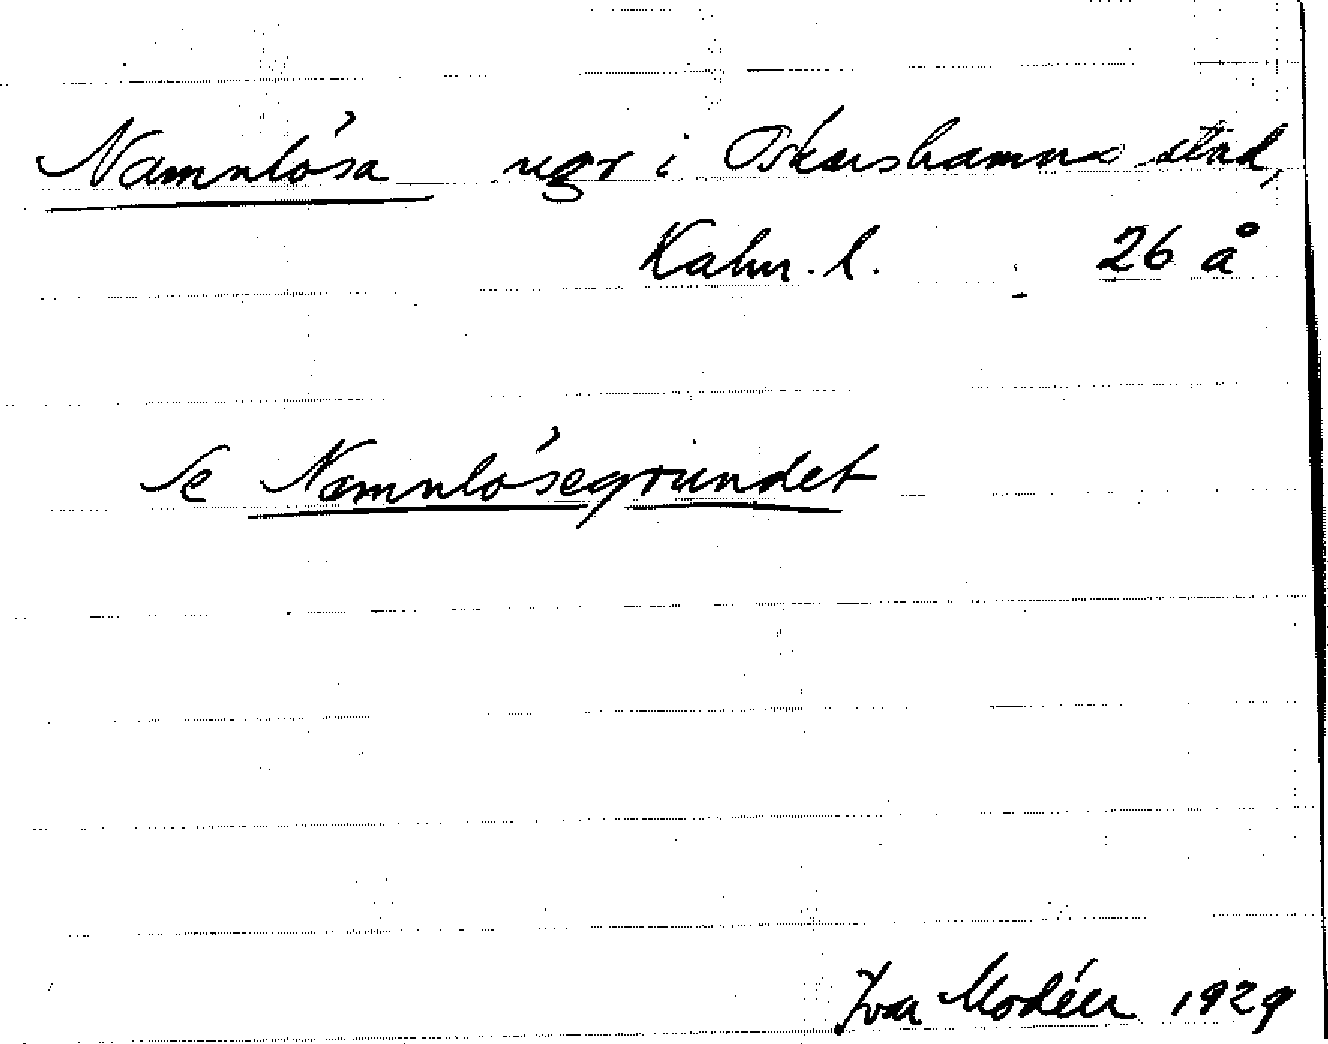 Namnlösa ugr i Oskarshamns stad,
Kalm. l. 26 å
Se Namnlösegrundet
Ivar Modéer 1929